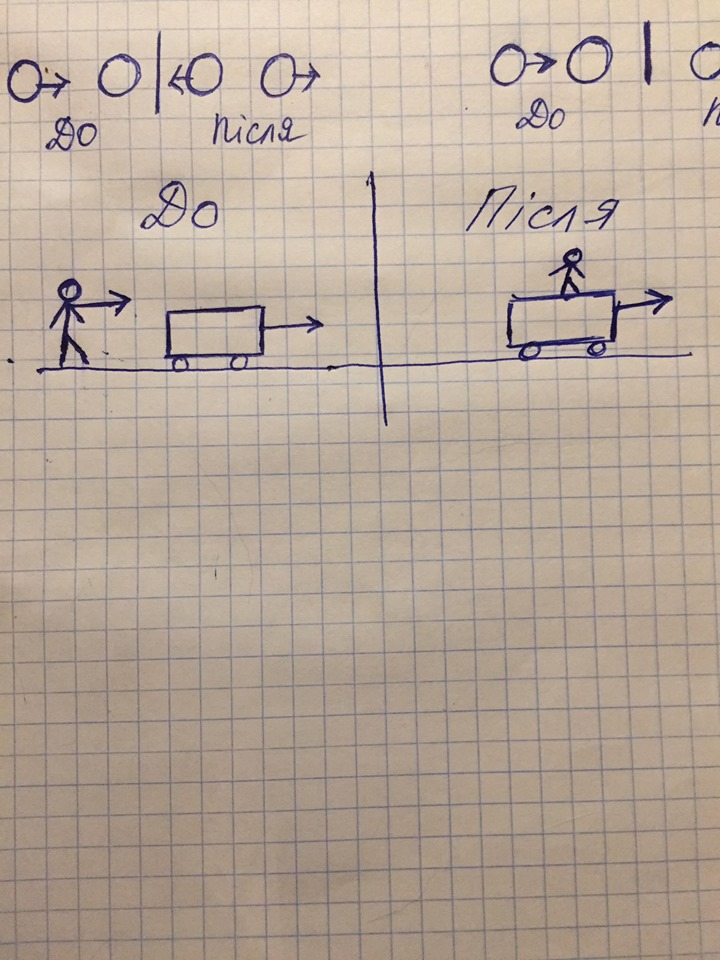 До Після До
До Після